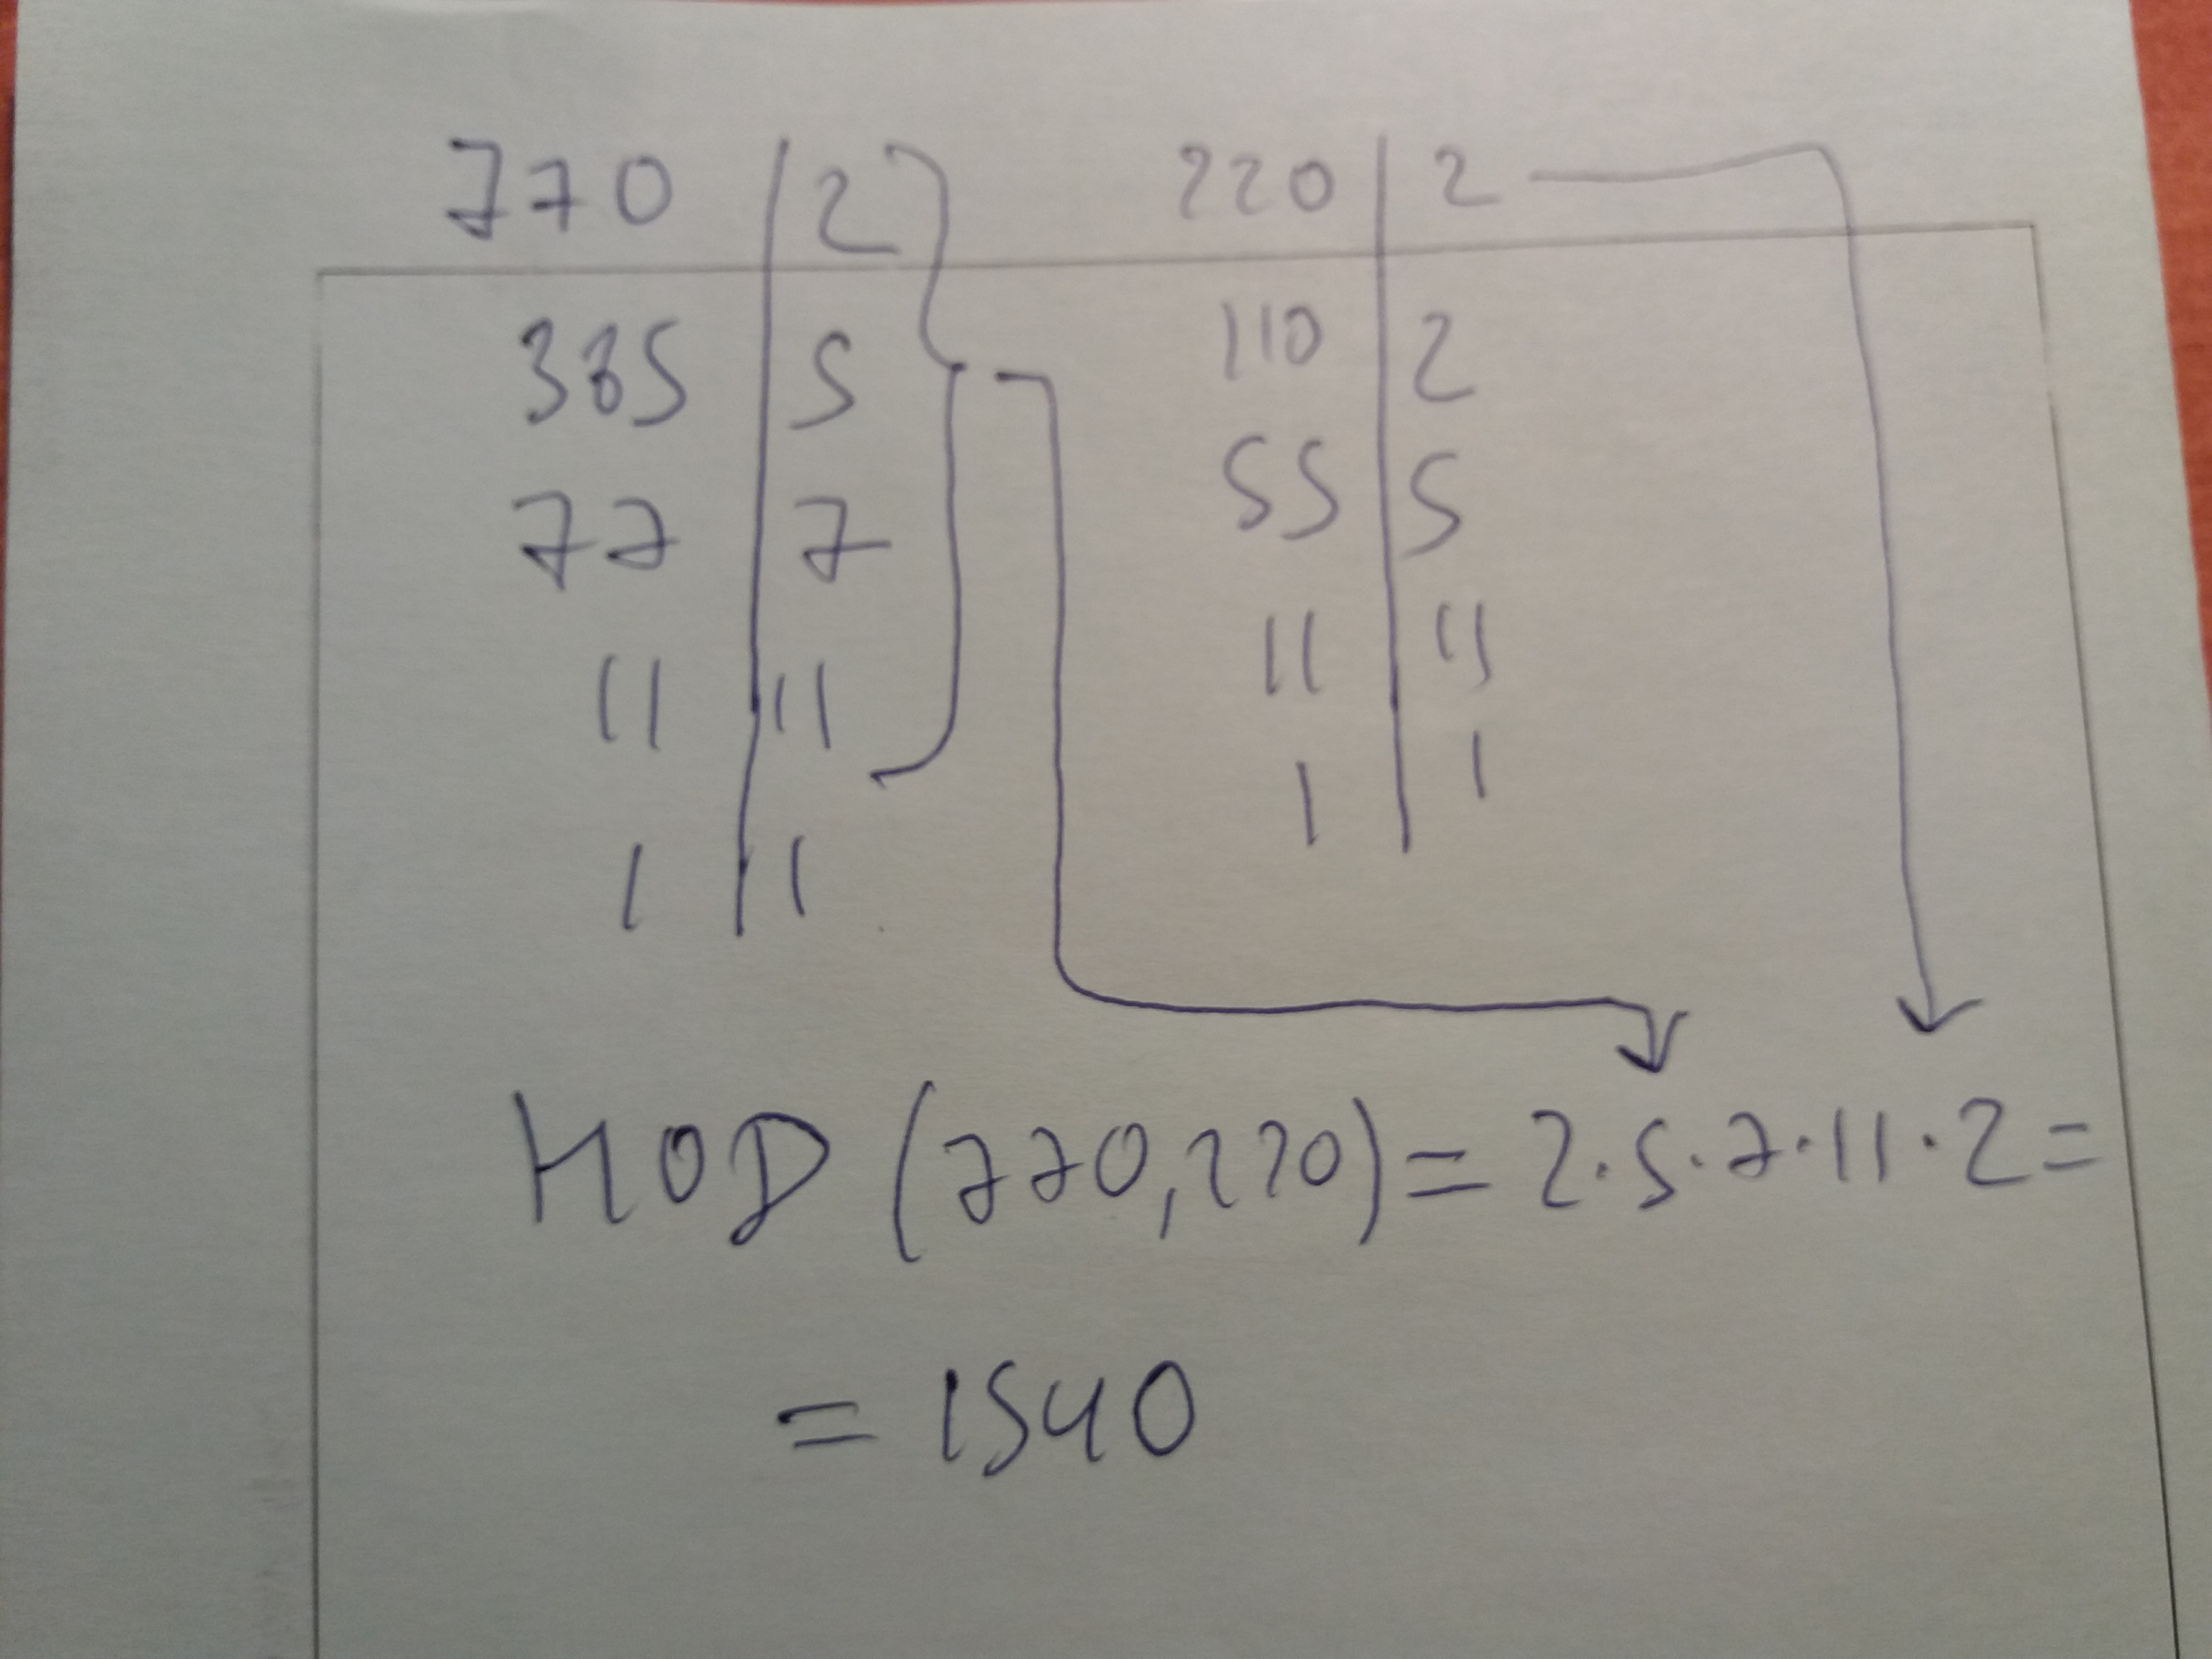 770 | 2
385 | 5
77 | 7
11 | 11
1 | 1
220 | 2
110 | 2
55 | 5
11 | 11
1 | 1
НОD (770,220) = 2·5·7·11·2 =
= 1540